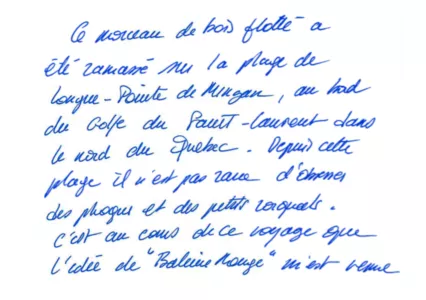 Ce morceau de bois flotté a
été ramassé sur la plage de
Longue-Pointe de Mingan, au bord
du Golfe du Saint-Laurent dans
le nord du Québec. Depuis cette
plage il n'est pas rare d'observer
des phoques et des petits rorquals.
C'est au cours de ce voyage que
l'idée de "Baleine Rouge" m'est venue